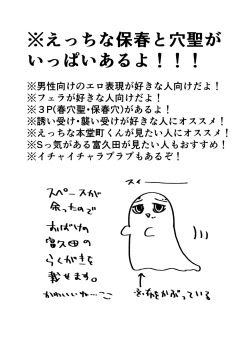 ※えっちな保春と穴聖が
いっぱいあるよ！！！
※男性向けのエロ表現が好きな人向けだよ！
※フェラが好きな人向けだよ！
※３P(春穴聖・保春穴)があるよ！
※誘い受け・襲い受けが好きな人にオススメ！
※えっちな本堂町くんが見たい人にオススメ！
※Sっ気がある富久田が見たい人もおすすめ！
※イチャイチャラブラブもあるぞ！
スペースが
余ったので
おばけの
富久田の
らくがきを
載せます。
かわいいね…ここ
スィー
↑
布をかぶっている